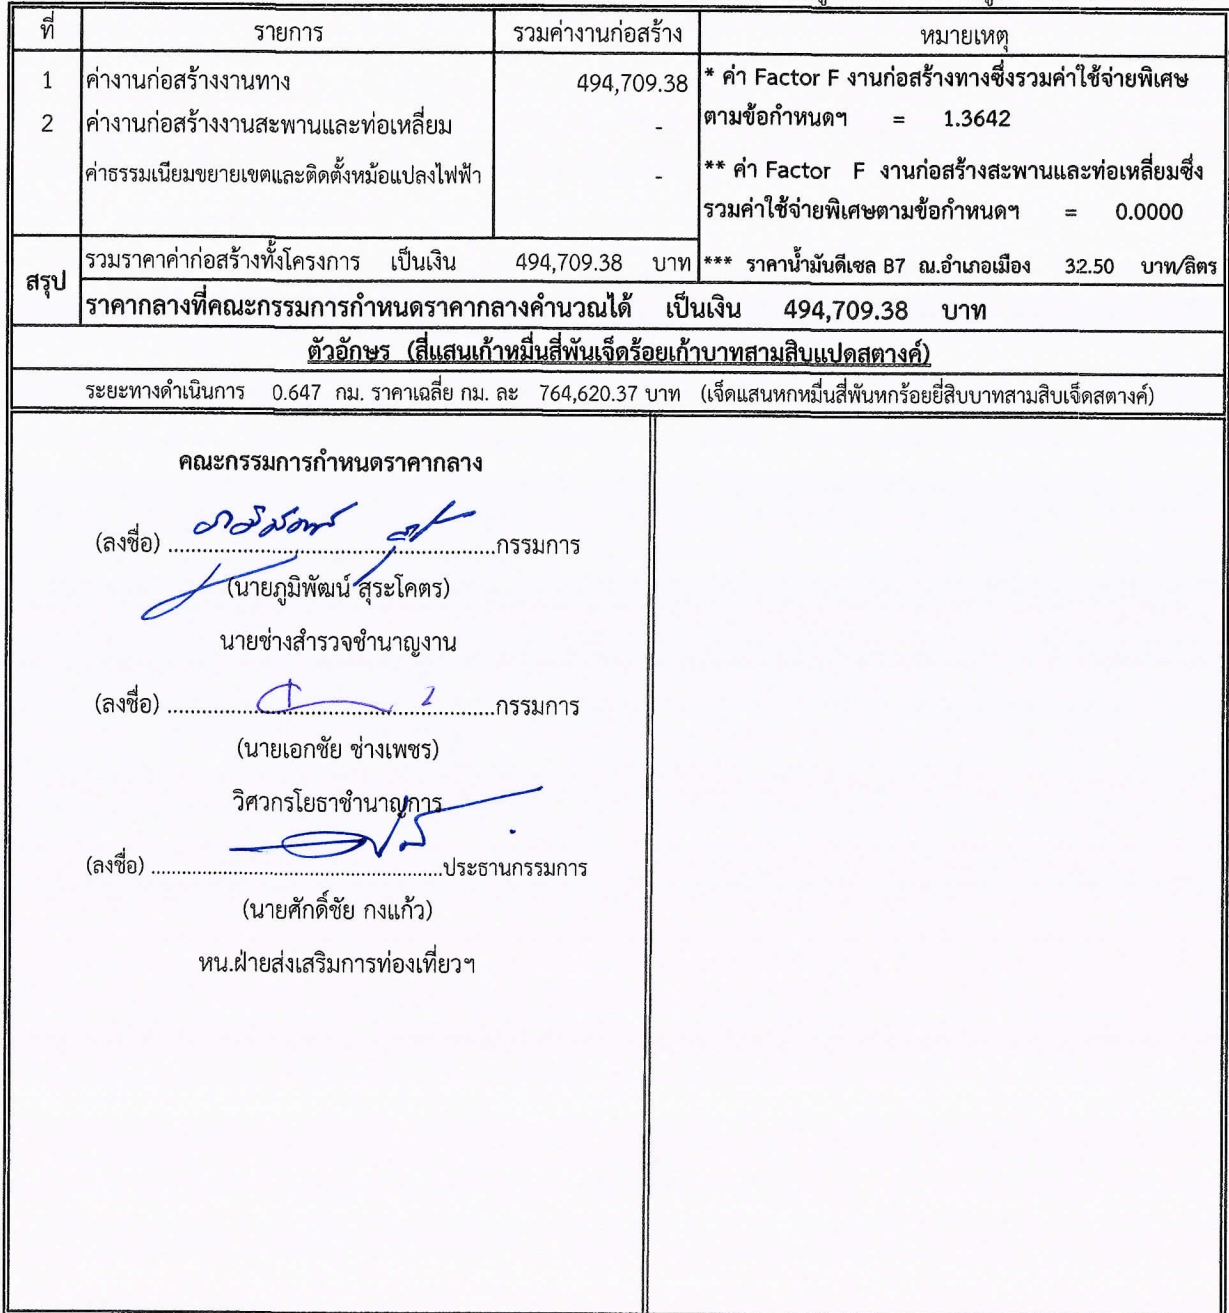 ที่ รายการ รวมค่างานก่อสร้าง หมายเหตุ
1 ค่างานก่อสร้างงานทาง 494,709.38
2 ค่างานก่อสร้างงานสะพานและท่อเหลี่ยม -
ค่าธรรมเนียมขยายเขตและติดตั้งหม้อแปลงไฟฟ้า -
* ค่า Factor F งานก่อสร้างทางซึ่งรวมค่าใช้จ่ายพิเศษ
ตามข้อกำหนดฯ = 1.3642
** ค่า Factor F งานก่อสร้างสะพานและท่อเหลี่ยมซึ่ง
รวมค่าใช้จ่ายพิเศษตามข้อกำหนดฯ = 0.0000
สรุป
รวมราคาค่าก่อสร้างทั้งโครงการ เป็นเงิน 494,709.38 บาท
*** ราคาน้ำมันดีเซล B7 ณ.อำเภอเมือง 32.50 บาท/ลิตร
ราคากลางที่คณะกรรมการกำหนดราคากลางคำนวณได้ เป็นเงิน 494,709.38 บาท
ตัวอักษร (สี่แสนเก้าหมื่นสี่พันเจ็ดร้อยเก้าบาทสามสิบแปดสตางค์)
ระยะทางดำเนินการ 0.647 กม. ราคาเฉลี่ย กม. ละ 764,620.37 บาท (เจ็ดแสนหกหมื่นสี่พันหกร้อยยี่สิบบาทสามสิบเจ็ดสตางค์)
คณะกรรมการกำหนดราคากลาง
(ลงชื่อ) ..........กรรมการ
(นายภูมิพัฒน์ สุระโคตร)
นายช่างสำรวจชำนาญงาน
(ลงชื่อ) ..........กรรมการ
(นายเอกชัย ช่างเพชร)
วิศวกรโยธาชำนาญการ
(ลงชื่อ) ..........ประธานกรรมการ
(นายศักดิ์ชัย กงแก้ว)
หน.ฝ่ายส่งเสริมการท่องเที่ยวฯ